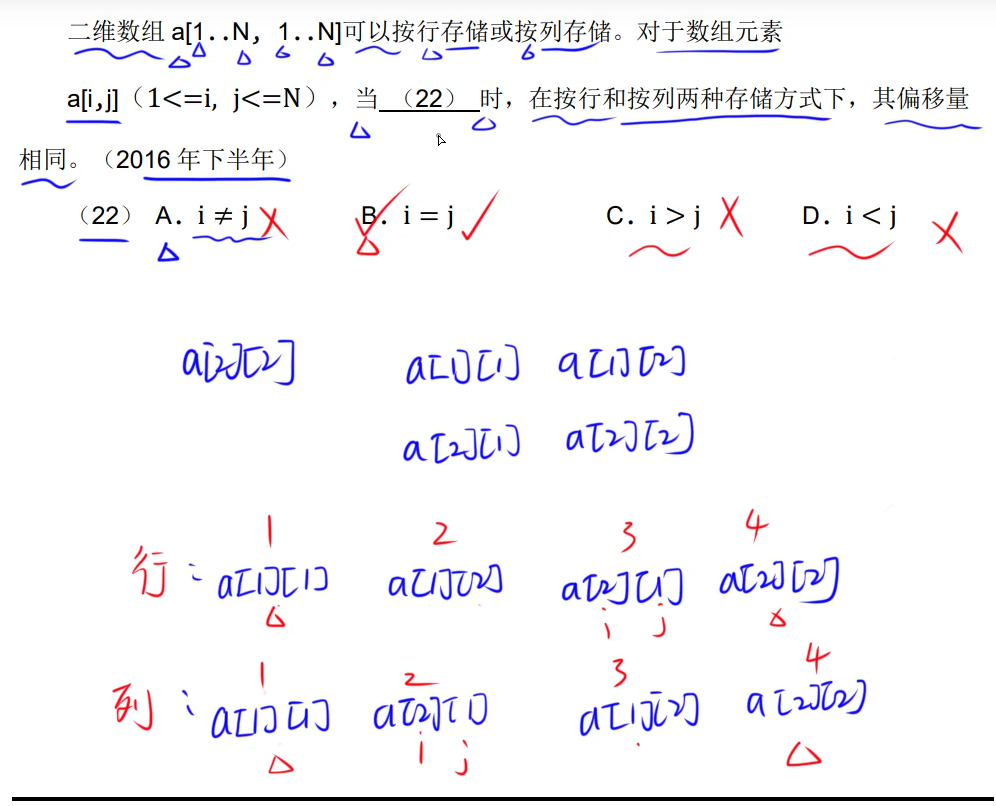 二维数组 a[1..N, 1..N]可以按行存储或按列存储。对于数组元素
a[i,j]（1<=i, j<=N），当 （22） 时，在按行和按列两种存储方式下，其偏移量
相同。（2016 年下半年）
（22） A. i ≠ j B. i = j C. i > j D. i < j
a[2][2] a[1][1] a[1][2]
a[2][1] a[2][2]
1 2 3 4
行: a[1][1] a[1][2] a[2][1] a[2][2]
i j
1 2 3 4
列: a[1][1] a[2][1] a[1][2] a[2][2]
i j